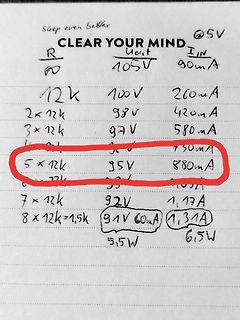 sleep even better
CLEAR YOUR MIND @5V
R Uout IIN
∞ 105V 90mA
12k 100V 260mA
2 x 12k 98V 420mA
3 x 12k 97V 580mA
5 x 12k 95V 880mA
7 x 12k 92V 1,17A
8 x 12k = 1,5k 91V 60mA 1,31A
5,5W 6,5W